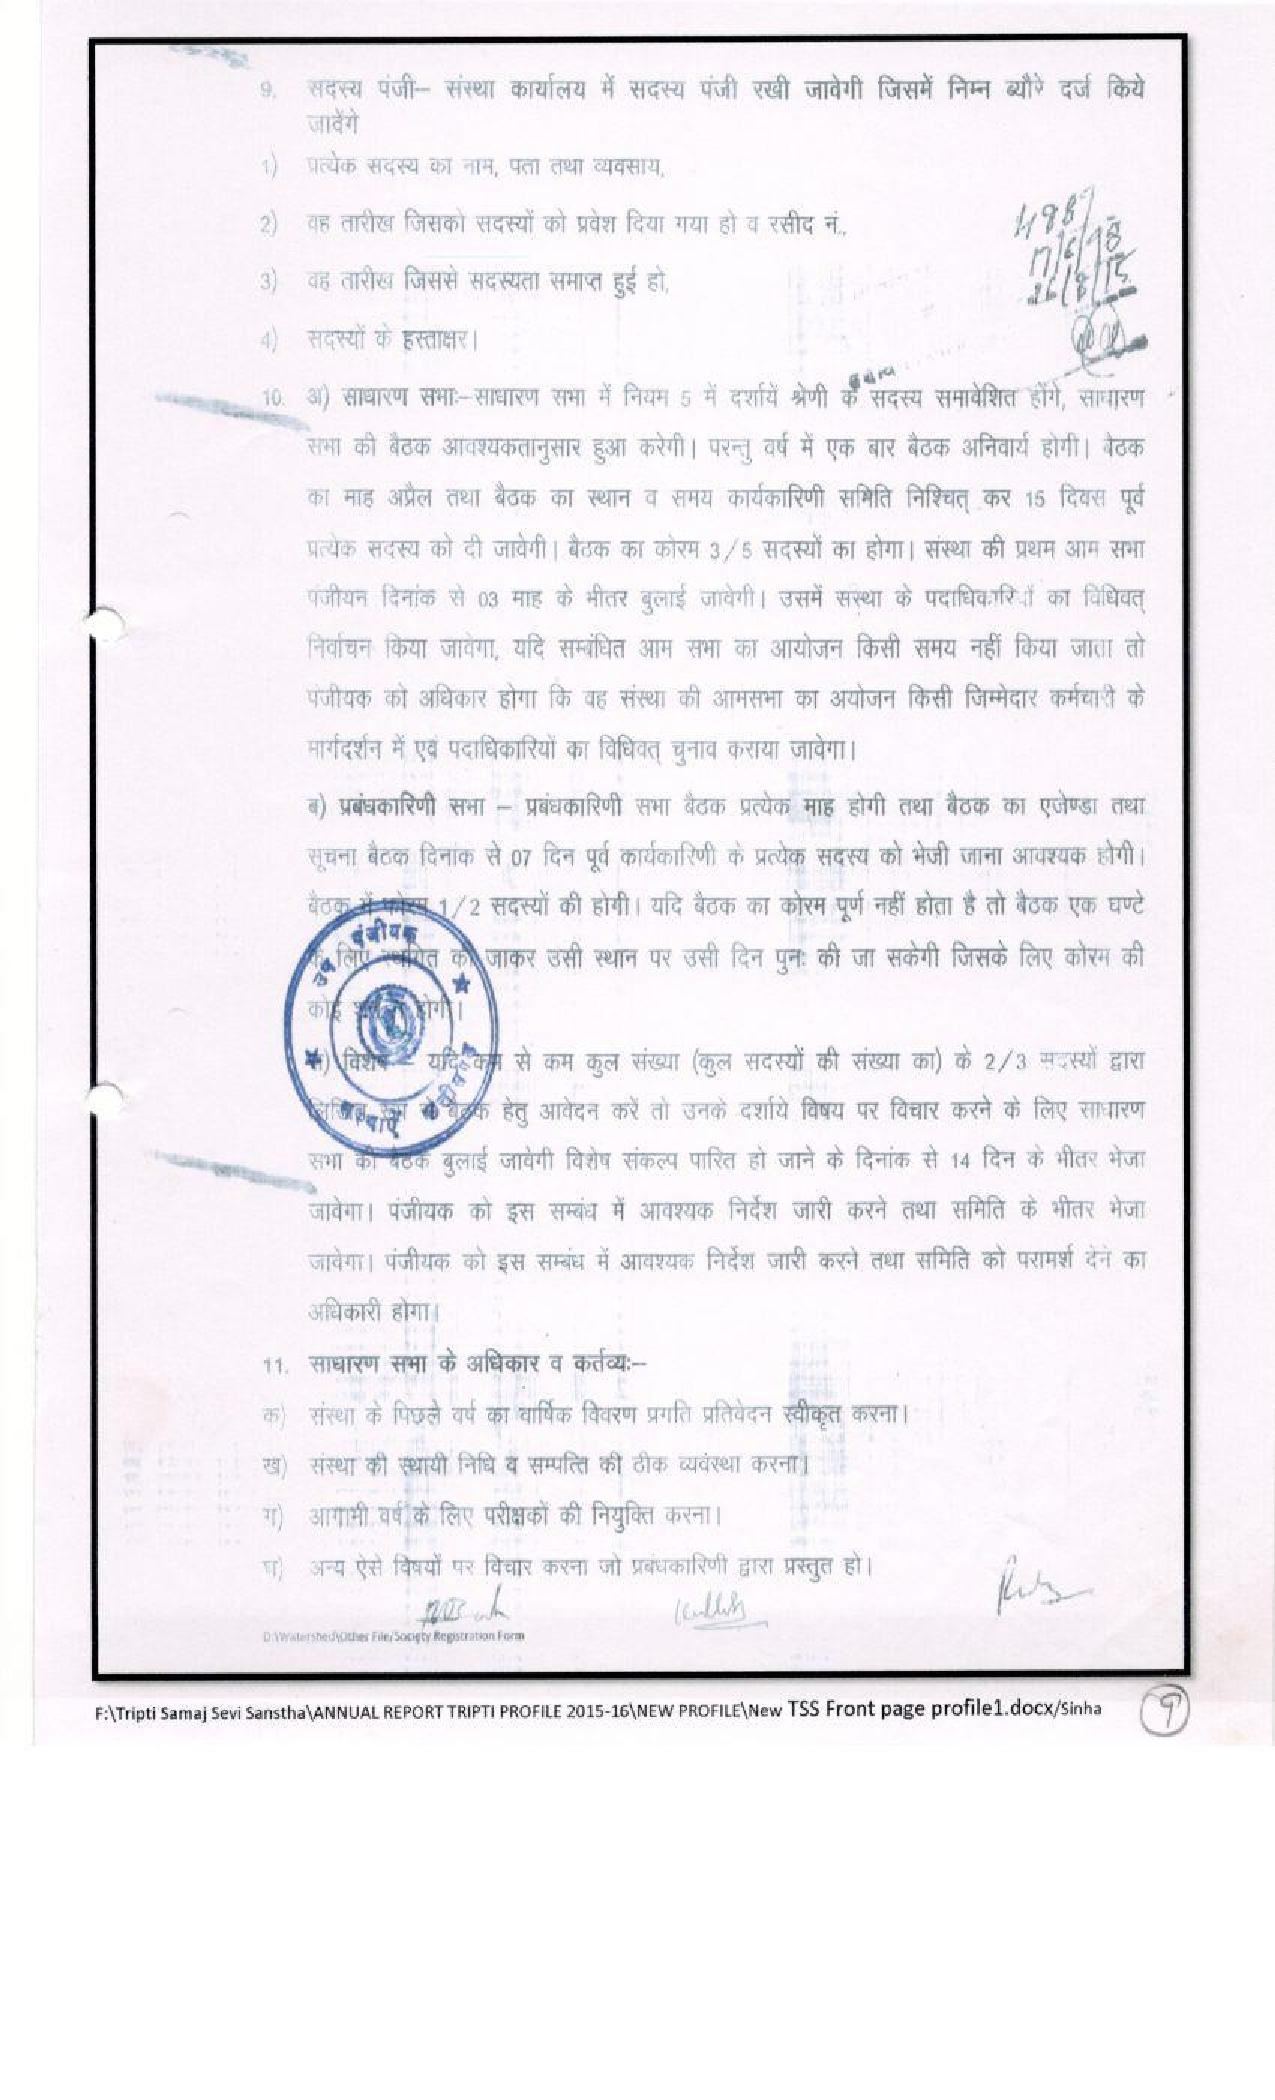 9. सदस्य पंजी– संस्था कार्यालय में सदस्य पंजी रखी जावेगी जिसमें निम्न ब्यौरे दर्ज किये
जावेंगे
1) प्रत्येक सदस्य का नाम, पता तथा व्यवसाय,
2) वह तारीख जिसको सदस्यों को प्रवेश दिया गया हो व रसीद नं.,
3) वह तारीख जिससे सदस्यता समाप्त हुई हो,
4) सदस्यों के हस्ताक्षर।
10. अ) साधारण सभाः–साधारण सभा में नियम 5 में दर्शायें श्रेणी के सदस्य समावेशित होंगे, साधारण
सभा की बैठक आवश्यकतानुसार हुआ करेगी। परन्तु वर्ष में एक बार बैठक अनिवार्य होगी। बैठक
का माह अप्रैल तथा बैठक का स्थान व समय कार्यकारिणी समिति निश्चित् कर 15 दिवस पूर्व
प्रत्येक सदस्य को दी जावेगी। बैठक का कोरम 3/5 सदस्यों का होगा। संस्था की प्रथम आम सभा
पंजीयन दिनांक से 03 माह के भीतर बुलाई जावेगी। उसमें संस्था के पदाधिकारियों का विधिवत्
निर्वाचन किया जावेगा, यदि सम्बंधित आम सभा का आयोजन किसी समय नहीं किया जाता तो
पंजीयक को अधिकार होगा कि वह संस्था की आमसभा का अयोजन किसी जिम्मेदार कर्मचारी के
मार्गदर्शन में एवं पदाधिकारियों का विधिवत् चुनाव कराया जावेगा।
ब) प्रबंधकारिणी सभा – प्रबंधकारिणी सभा बैठक प्रत्येक माह होगी तथा बैठक का एजेण्डा तथा
सूचना बैठक दिनांक से 07 दिन पूर्व कार्यकारिणी के प्रत्येक सदस्य को भेजी जाना आवश्यक होगी।
बैठक में कोरम 1/2 सदस्यों की होगी। यदि बैठक का कोरम पूर्ण नहीं होता है तो बैठक एक घण्टे
के लिए स्थगित की जाकर उसी स्थान पर उसी दिन पुनः की जा सकेगी जिसके लिए कोरम की
कोई होगी।
विशेष – यदि कम से कम कुल संख्या (कुल सदस्यों की संख्या का) के 2/3 सदस्यों द्वारा
बैठक हेतु आवेदन करें तो उनके दर्शाये विषय पर विचार करने के लिए साधारण
सभा की बैठक बुलाई जावेगी विशेष संकल्प पारित हो जाने के दिनांक से 14 दिन के भीतर भेजा
जावेगा। पंजीयक को इस सम्बंध में आवश्यक निर्देश जारी करने तथा समिति के भीतर भेजा
जावेगा। पंजीयक को इस सम्बंध में आवश्यक निर्देश जारी करने तथा समिति को परामर्श देने का
अधिकारी होगा।
11. साधारण सभा के अधिकार व कर्तव्यः–
क) संस्था के पिछले वर्ष का वार्षिक विवरण प्रगति प्रतिवेदन स्वीकृत करना।
ख) संस्था की स्थायी निधि व सम्पत्ति की ठीक व्यवंस्था करना।
ग) आगामी वर्ष के लिए परीक्षकों की नियुक्ति करना।
घ) अन्य ऐसे विषयों पर विचार करना जो प्रबंधकारिणी द्वारा प्रस्तुत हो।
D:\Watershed\Other File/Society Registration Form
F:\Tripti Samaj Sevi Sanstha\ANNUAL REPORT TRIPTI PROFILE 2015-16\NEW PROFILE\New TSS Front page profile1.docx/Sinha
9